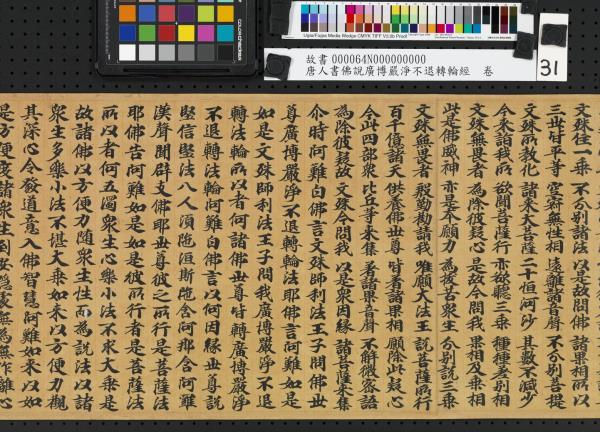 colorchecker
Ugra/Fogra Media Wedge CMYK TIFF V3.0b Proof
故書 000064N000000000
唐人書佛說廣博嚴淨不退轉輪經 卷
31
文殊住一乘 不分別諸法 以是故問佛 諸果相所以
三世中平等 空寂無性相 遠離諸音聲 不分別菩提
文殊所教化 諸來大菩薩 二十恒河沙 其數不減少
今來詣我所 欲聞菩薩行 亦欲聽三乘 種種差別相
文殊無畏者 為除彼疑心 是故今問我 果相及乘相
此是佛威神 亦是本願力 為 眾生 分別說三乘
文殊無畏者 慇懃勸請我 唯願大法王 說菩薩所行
百千億諸天 供養佛世尊 皆著諸果相 願除此疑心
今此四部眾 比丘等來集 著諸果音聲 不解微密語
為除彼疑故 文殊今問我 以是眾因緣 諸菩薩來集
尒時阿難白佛言文殊師利法王子問佛世
尊廣博嚴淨不退轉輪法耶佛言阿難如是
如是文殊師利法王子問我廣博嚴淨不退
轉法輪所以者何諸佛世尊皆轉廣博嚴淨
不退轉法輪阿難白佛言以何因緣世尊說
堅信堅法八人須陁洹斯陁含阿那含阿羅
漢聲聞辟支佛耶世尊彼之所行是菩薩法
耶佛告阿難如是如是彼所行者是菩薩法
所以者何五濁眾生心樂小法不求大乘是
故諸佛以方便力隨眾生性而為說法以諸
眾生多樂小法不堪大乘如來以方便力觀
其深心令發道意入佛智慧阿難如來以如
是方便 諸眾生到安隱處無為無作離心